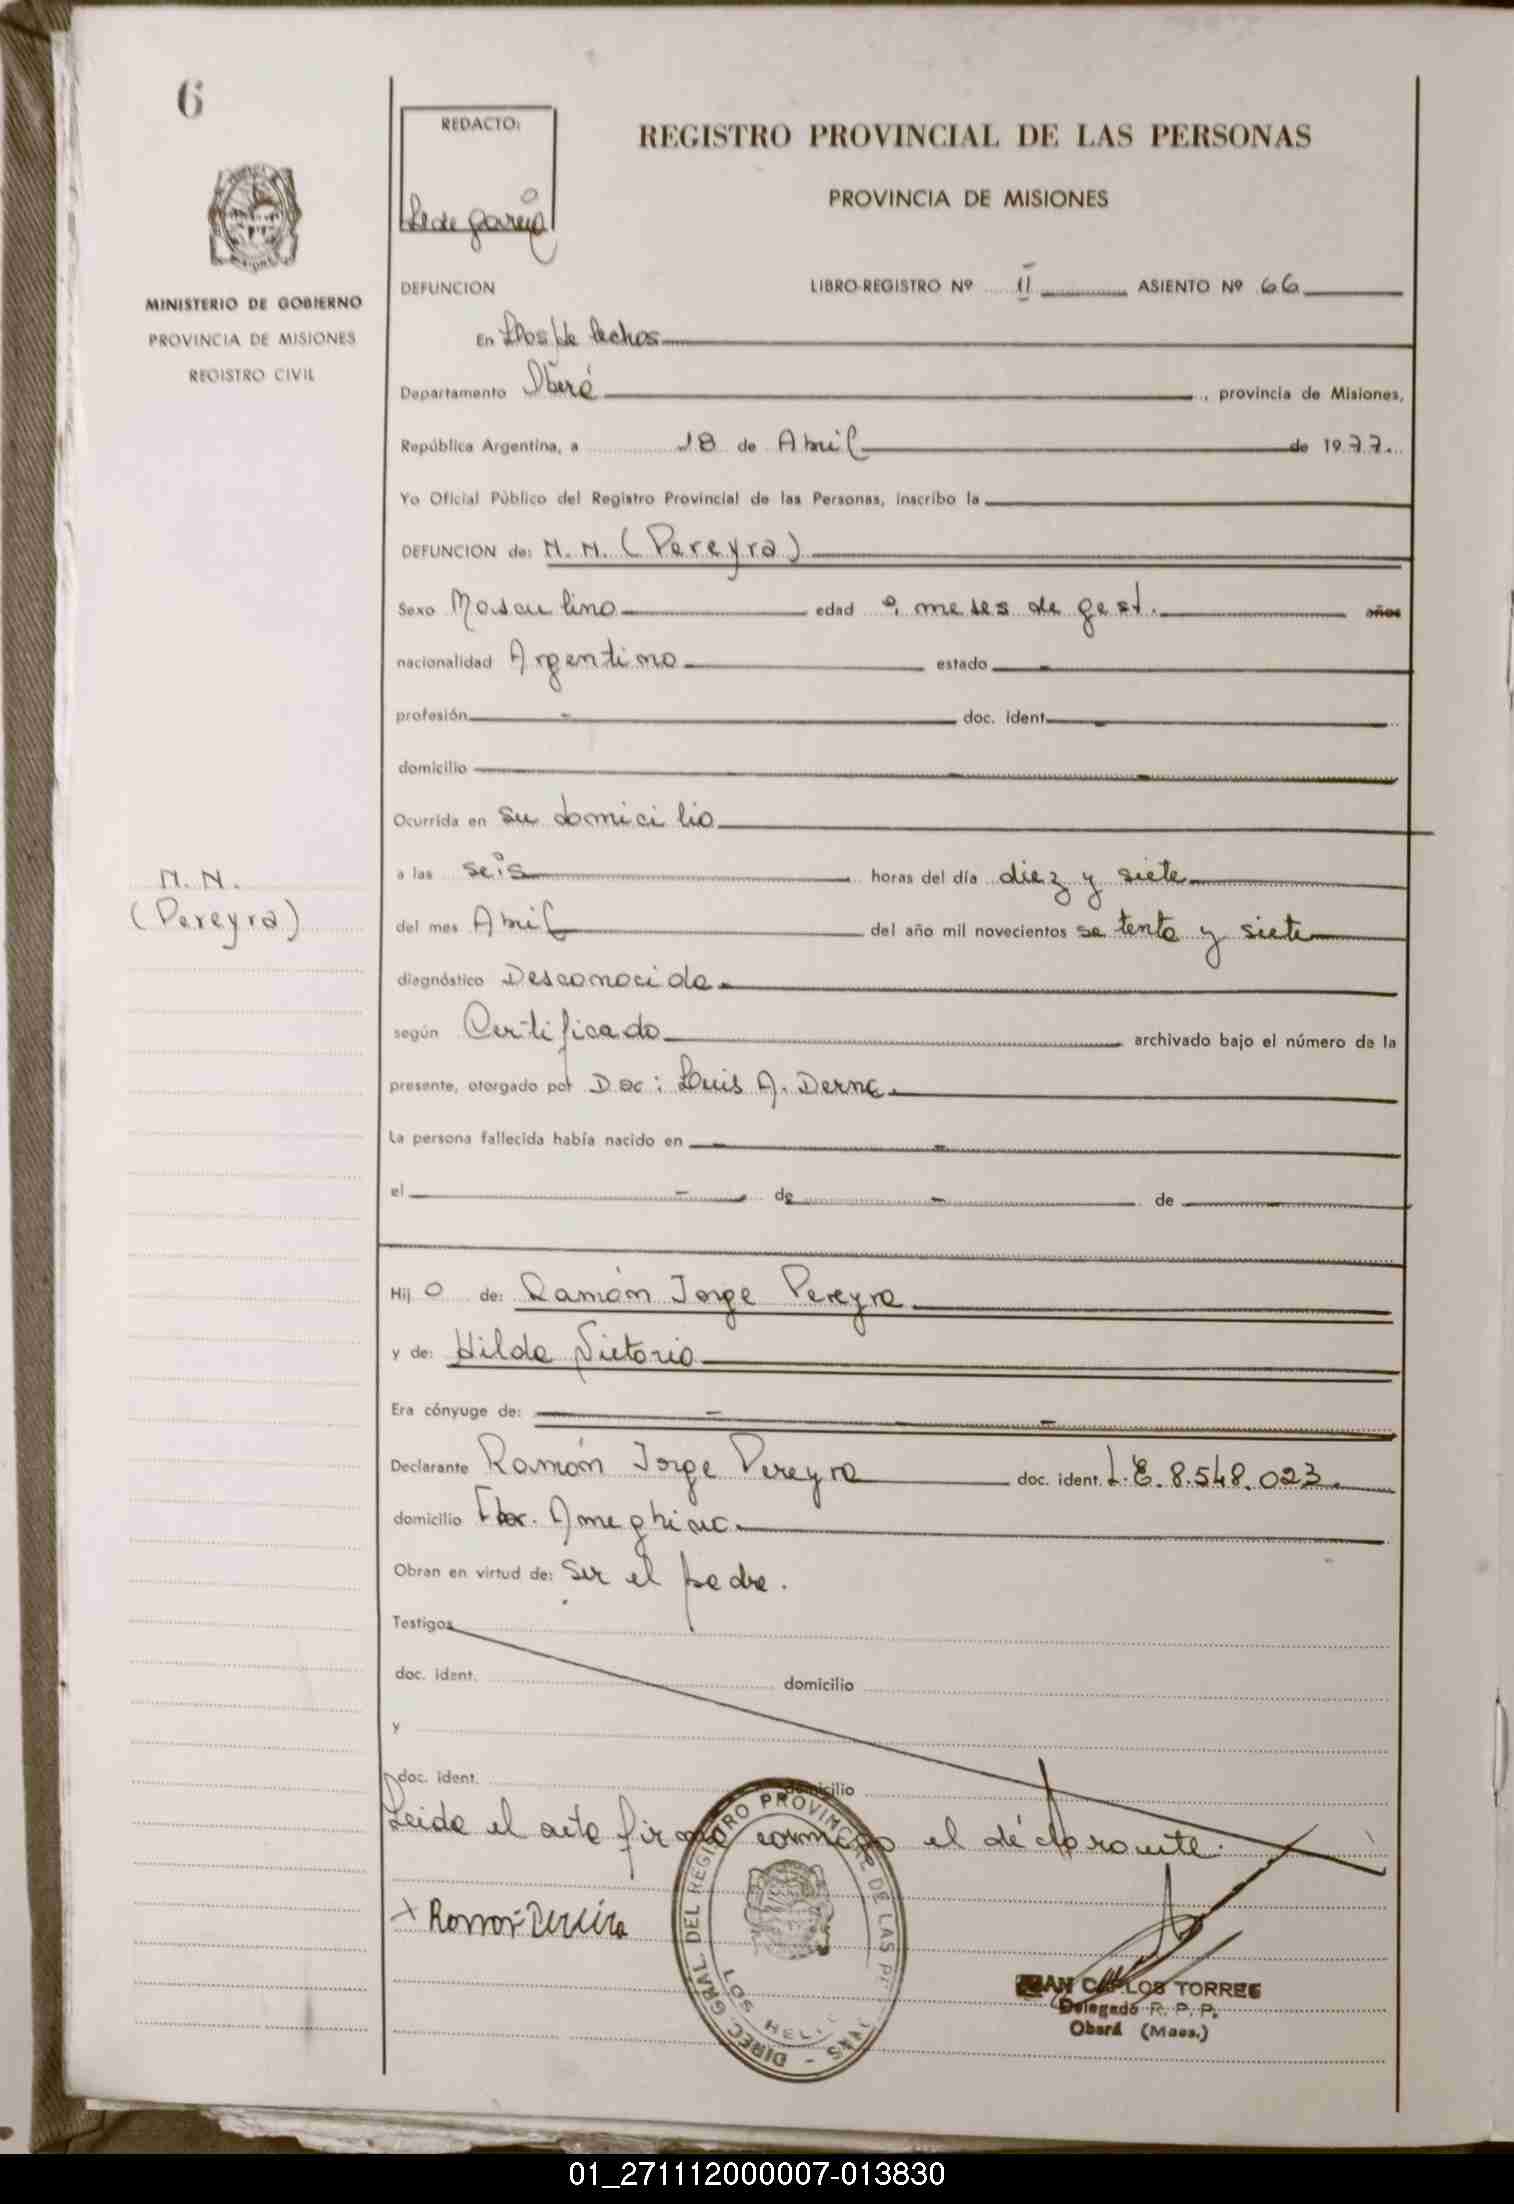 6
REDACTO:
REGISTRO PROVINCIAL DE LAS PERSONAS
PROVINCIA DE MISIONES
MINISTERIO DE GOBIERNO
PROVINCIA DE MISIONES
REGISTRO CIVIL
DEFUNCION LIBRO-REGISTRO Nº II ASIENTO Nº 66
En
Departamento Oberá , provincia de Misiones,
República Argentina, a 18 de Abril de 1977.
Yo Oficial Público del Registro Provincial de las Personas, inscribo la
DEFUNCION de: N.N. (Pereyra)
Sexo Masculino edad 9 meses de gest. años
nacionalidad Argentino estado -
profesión - doc. ident. -
domicilio - -
Ocurrida en su domicilio
a las seis horas del día diez y siete
N.N.
(Pereyra)
del mes Abril del año mil novecientos setenta y siete
diagnóstico Desconocida
según Certificado archivado bajo el número de la
presente, otorgado por Doc: Luis A. Derna
La persona fallecida había nacido en - -
el - de - de -
Hijo de: Ramón Jorge Pereyra
y de: Hilda Victoria
Era cónyuge de: - -
Declarante Ramón Jorge Pereyra doc. ident. L.E. 8.548.023.
domicilio Ameghino
Obran en virtud de: Ser el padre.
Testigos
doc. ident. domicilio
y
doc. ident. domicilio
Leida el acta firma conmigo el declarante.
DIREC. GRAL. DEL REGISTRO PROVINCIAL DE LAS
LOS HELE
JUAN CARLOS TORRES
Delegado R. P. P.
Oberá (Mnes.)
01_271112000007-013830